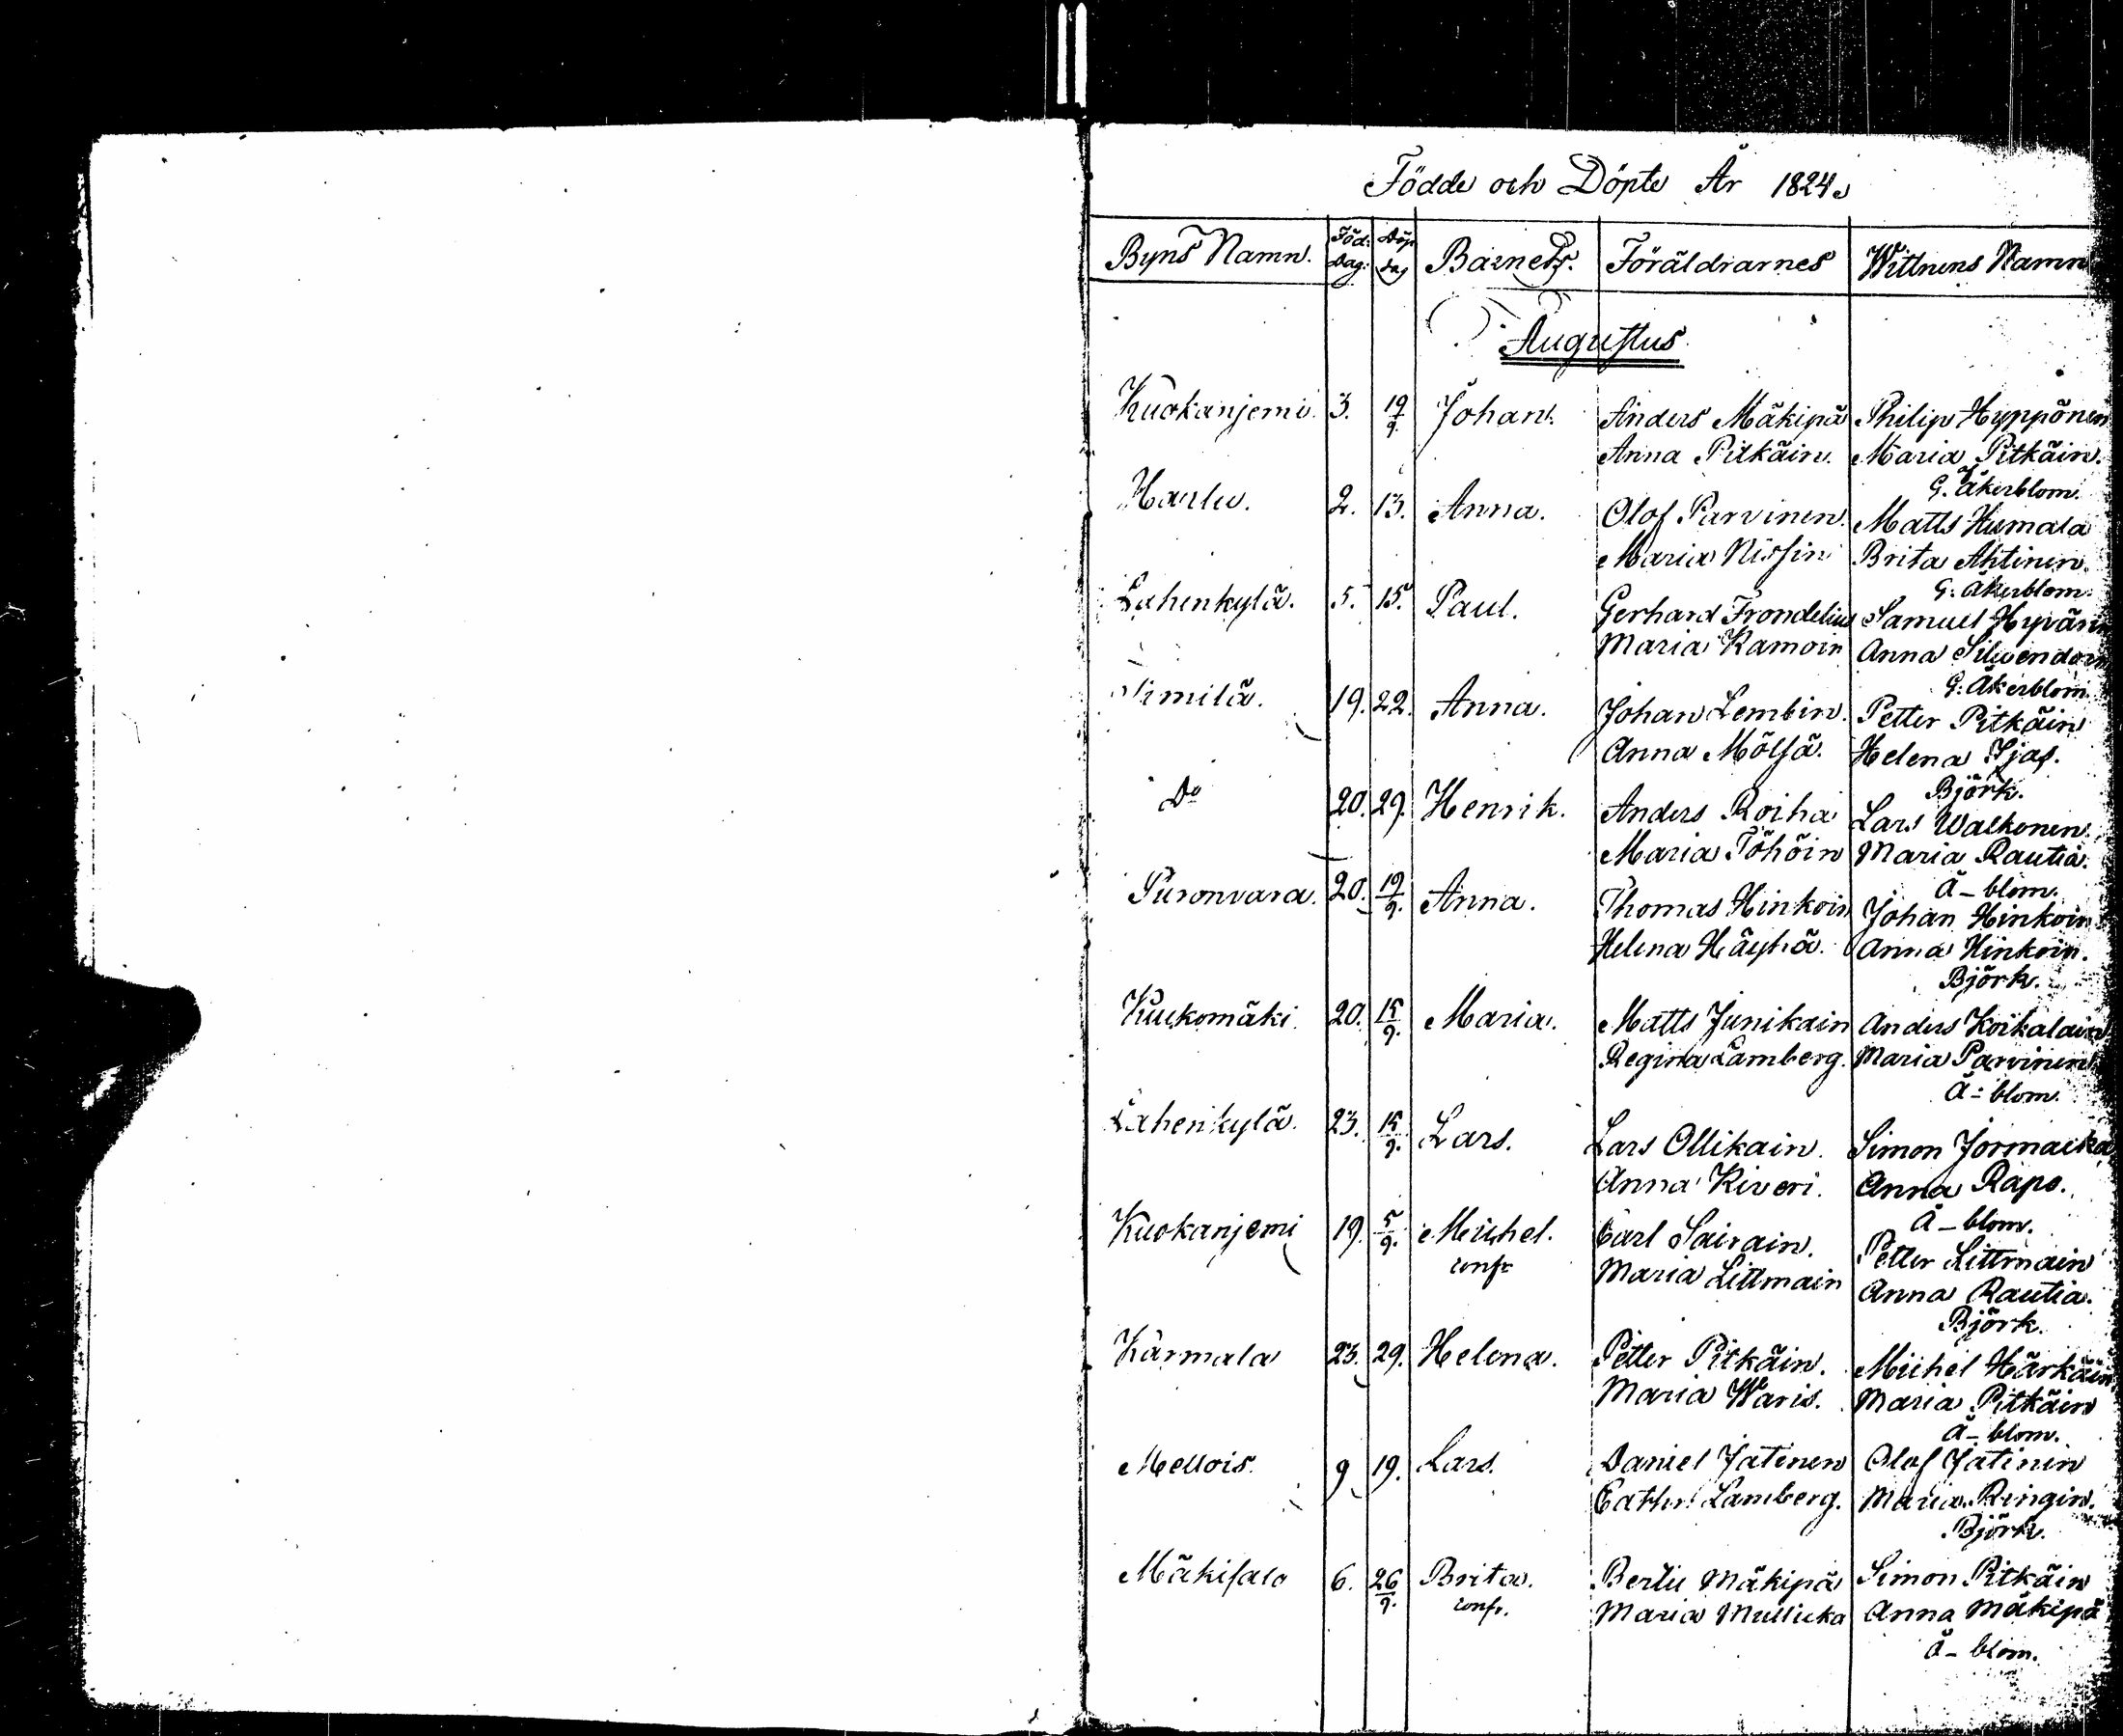 Födde och Döpte År 1824.
Byns Namn. Föd: Dag: Döp dag Barnets. Föräldrarnes Wittnens Namn
Augustus
Kuokanjemi. 3. 19/9. Johan. Anders Mäkipä Philip Hyppönen
Anna Pitkäin. Maria Pitkäin.
G. Åkerblom.
Harlu. 2. 13. Anna. Olof Parvinen. Matts Humala
Maria Nissin Brita Ahtinen.
G. Åkerblom.
Lahenkylä. 5. 15. Paul. Gerhard Frondelius Samuel Hyvärin
Maria Ramoin Anna Silvendoin
G. Åkerblom.
Nimilä. 19. 22. Anna. Johan Lembin. Petter Pitkäin
Anna Mölsä. Helena Ijas.
Björk.
Do 20. 29. Henrik. Anders Roiha Lars Walkonen.
Maria Töhöin Maria Rautia.
Å-blom.
Puronvara. 20. 19/9. Anna. Thomas Hinkoin Johan Hinkoin
Helena Häyhä. Anna Hinkoin.
Björk.
Kuukomäki. 20. 15/9. Maria. Matts Junikain Anders Koikalain
Regina Lamberg. Maria Parvinen
Å-blom.
Lahenkylä. 23. 15/9. Lars. Lars Ollikain. Simon Jormacka
Anna Kiveri. Anna Rapo.
Å-blom.
Kuokanjemi 19. 5/9. Michel. Carl Sairain. Petter Littmain
conf. Maria Littmain Anna Rautia.
Björk.
Kärmala 23. 29. Helena. Petter Pitkäin. Michel Härkäin
Maria Waris. Maria Pitkäin
Å-blom.
Mellois. 9 19. Lars. Daniel Jatinen Olof Jatinin
Cathr. Lamberg. Maria Ringin.
Björk.
Mäkisalo 6. 26/9. Brita. Bertil Mäkipä Simon Pitkäin
conf. Maria Mullicka Anna Mäkipä
Å-blom.